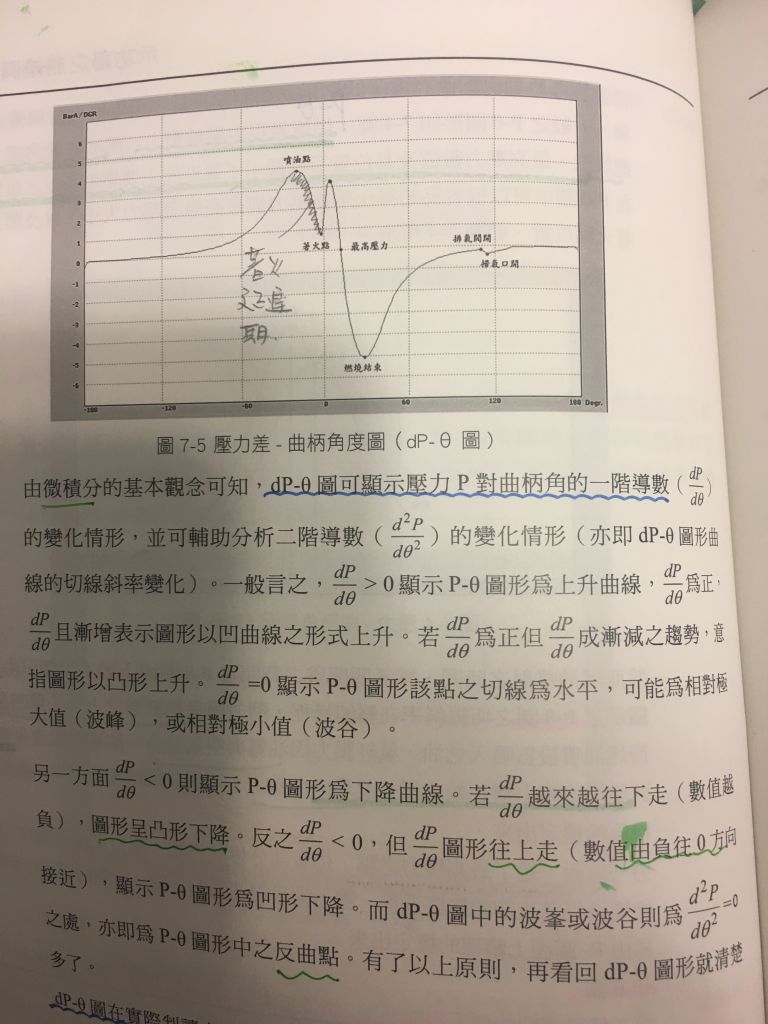 BarA/DGR
6
5
4
3
2
1
0
-1
-2
-3
-4
-5
-6
噴油點
著火點
最高壓力
排氣閥開
掃氣口開
燃燒結束
著火
延遲
期.
-180 -120 -60 0 60 120 180 Degr.
圖 7-5 壓力差 - 曲柄角度圖（dP- θ 圖）
由微積分的基本觀念可知，dP-θ 圖可顯示壓力 P 對曲柄角的一階導數（dP/dθ）
的變化情形，並可輔助分析二階導數（d²P/dθ²）的變化情形（亦即 dP-θ 圖形曲
線的切線斜率變化）。一般言之，dP/dθ > 0 顯示 P-θ 圖形為上升曲線，dP/dθ 為正，
dP/dθ 且漸增表示圖形以凹曲線之形式上升。若 dP/dθ 為正但 dP/dθ 成漸減之趨勢，意
指圖形以凸形上升。dP/dθ =0 顯示 P-θ 圖形該點之切線為水平，可能為相對極
大值（波峰），或相對極小值（波谷）。
另一方面 dP/dθ < 0 則顯示 P-θ 圖形為下降曲線。若 dP/dθ 越來越往下走（數值越
負），圖形呈凸形下降。反之 dP/dθ < 0，但 dP/dθ 圖形往上走（數值由負往 0 方向
接近），顯示 P-θ 圖形為凹形下降。而 dP-θ 圖中的波峯或波谷則為 d²P/dθ² =0
之處，亦即為 P-θ 圖形中之反曲點。有了以上原則，再看回 dP-θ 圖形就清楚
多了。
dP-θ 圖在實際